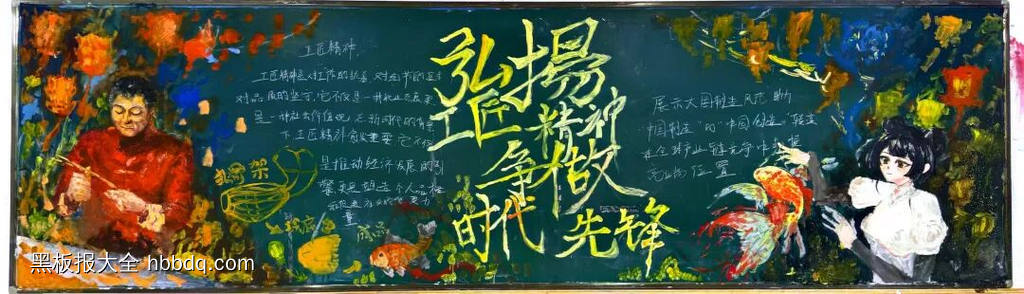 工匠精神
工匠精神是对工作的执着 对细节的
对品质的坚守,它不仅是一种
是一种社会价值观 在新时代的背景
下工匠精神愈发重要 它不仅
是推动经济发展的引
擎更是塑造个人品格
量
弘揚
工匠精神
争做
时代先锋
展示大国制造风范 助
"中国制造"向"中国创造"转变
在全球产业链竞争中
位置
黑板报大全 hbbdq.com